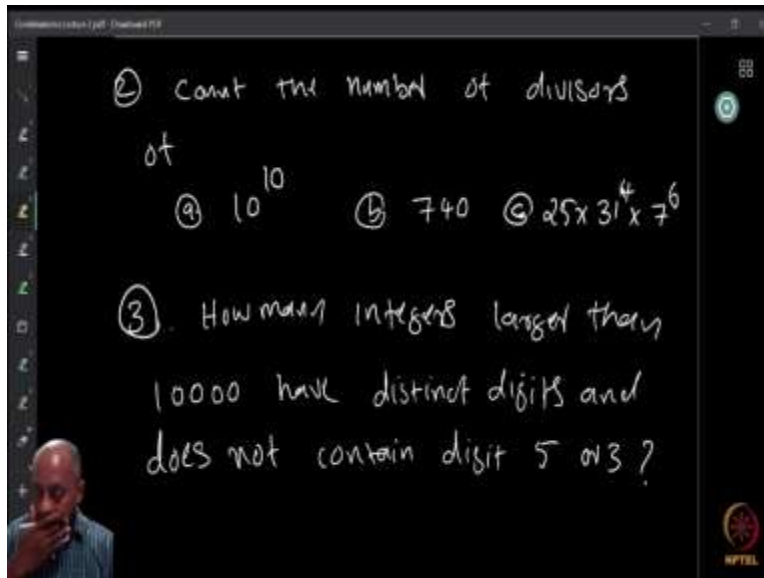 Combinatorics Lecture 1.pdf - Download PDF
② Count the number of divisors
of
ⓐ 10^10 ⓑ 740 ⓒ 25 x 31^4 x 7^6
③. How many integers larger than
10000 have distinct digits and
does not contain digit 5 or 3?
NPTEL